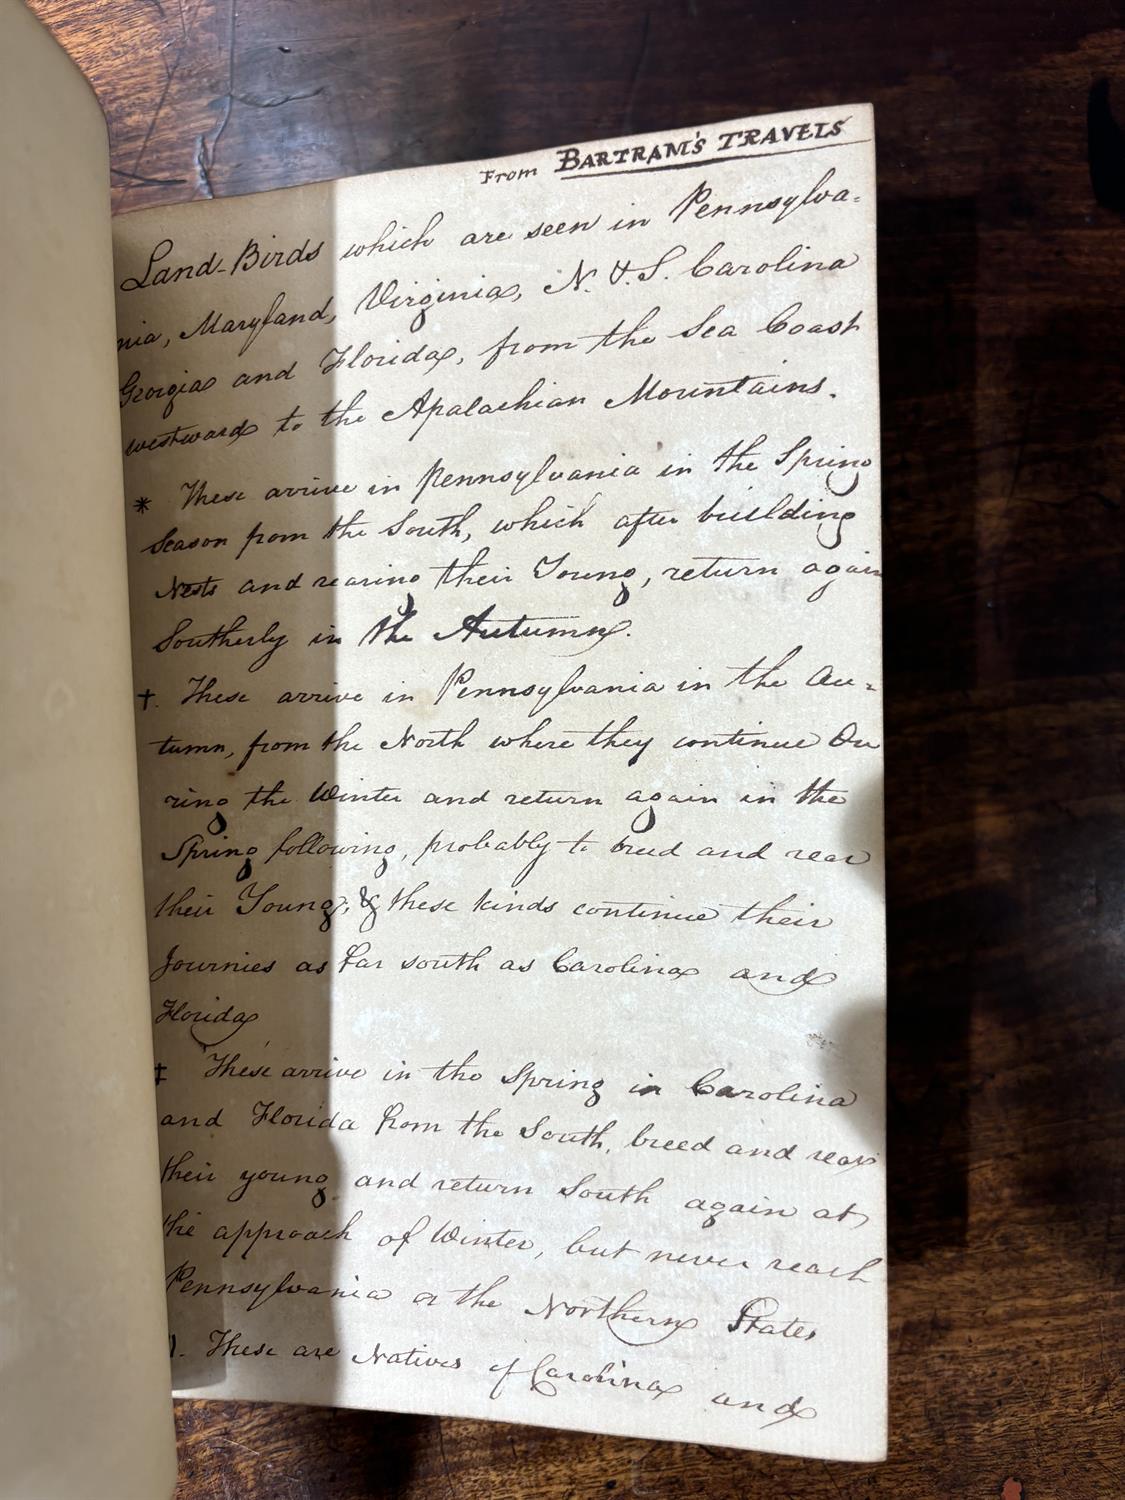 From BARTRAM'S TRAVELS
Land-Birds which are seen in Pennsylva=
nia, Maryland, Virginia, N. & S. Carolina
Georgia and Florida, from the Sea Coast
westward to the Apalachian Mountains.
* These arrive in Pennsylvania in the Spring
Season from the South, which after building
Nests and rearing their Young, return again
Southerly in the Autumn.
†. These arrive in Pennsylvania in the Au=
tumn, from the North where they continue Du
ring the Winter and return again in the
Spring following, probably to breed and rear
their Young; & these kinds continue their
Journies as far south as Carolina and
Florida
‡ These arrive in the Spring in Carolina
and Florida from the South, breed and rear
their young and return South again at
the approach of Winter, but never reach
Pennsylvania or the Northern States
These are Natives of Carolina and